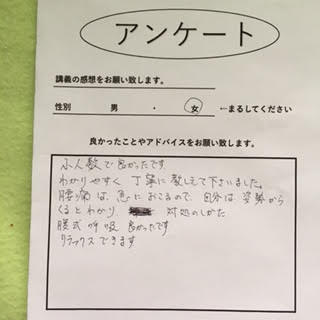 アンケート
講義の感想をお願い致します。
性別 男 ・ 女 ←まるしてください
良かったことやアドバイスをお願い致します。
少人数で良かったです
わかりやすく 丁寧に教えて下さいました。
腰痛は 急におこるので、自分は 姿勢から
くるとわかり 対処のしかた
腹式呼吸 良かったです
リラックスできます